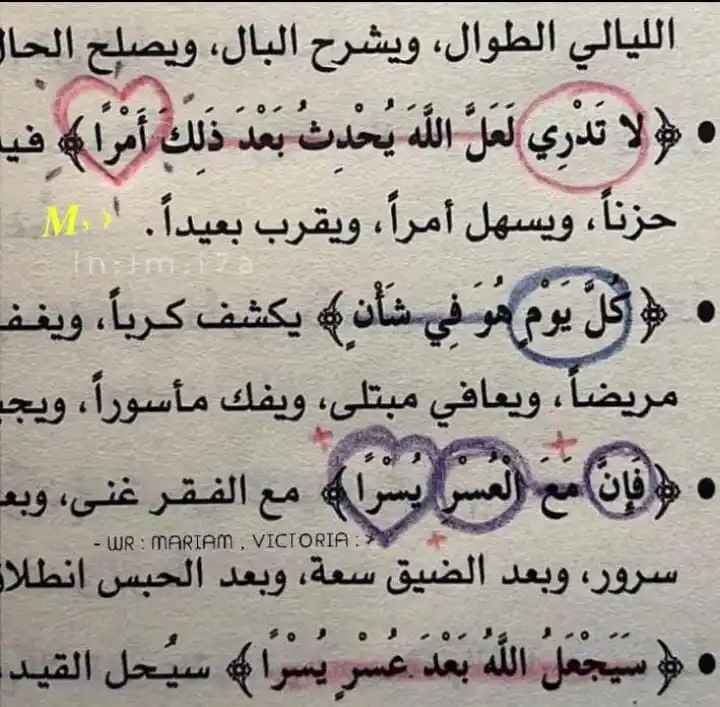 الليالي الطوال، ويشرح البال، ويصلح الحال
• ﴿لا تَدْرِي لَعَلَّ اللَّهَ يُحْدِثُ بَعْدَ ذَلِكَ أَمْرًا﴾
حزناً، ويسهل أمراً، ويقرب بعيداً.
• ﴿كُلَّ يَوْمٍ هُوَ فِي شَأْنٍ﴾ يكشف كرباً،
مريضاً، ويعافي مبتلى، ويفك مأسوراً،
• ﴿فَإِنَّ مَعَ الْعُسْرِ يُسْرًا﴾ مع الفقر غنى،
- WR : MARIAM , VICTORIA :
سرور، وبعد الضيق سعة، وبعد الحبس
• ﴿سَيَجْعَلُ اللَّهُ بَعْدَ عُسْرٍ يُسْرًا﴾ سيُحل القيد